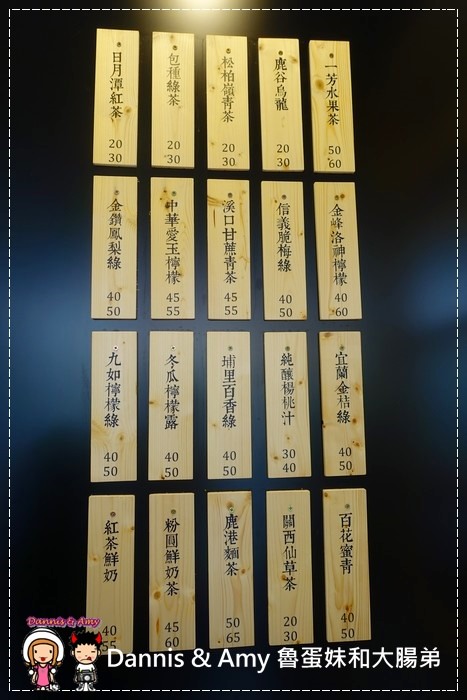 一芳水果茶
50
60
鹿谷烏龍
20
30
松柏嶺青茶
20
30
包種綠茶
20
30
日月潭紅茶
20
30
金峰洛神檸檬
40
60
信義脆梅綠
40
50
溪口甘蔗青茶
45
55
中華愛玉檸檬
45
55
金鑽鳳梨綠
40
50
宜蘭金桔綠
40
50
純釀楊桃汁
30
40
埔里百香綠
40
50
冬瓜檸檬露
40
50
九如檸檬綠
40
50
百花蜜青
40
50
關西仙草茶
20
30
鹿港麵茶
50
65
粉圓鮮奶茶
45
60
紅茶鮮奶
40
55
Dannis & Amy
Dannis & Amy 魯蛋妹和大腸弟